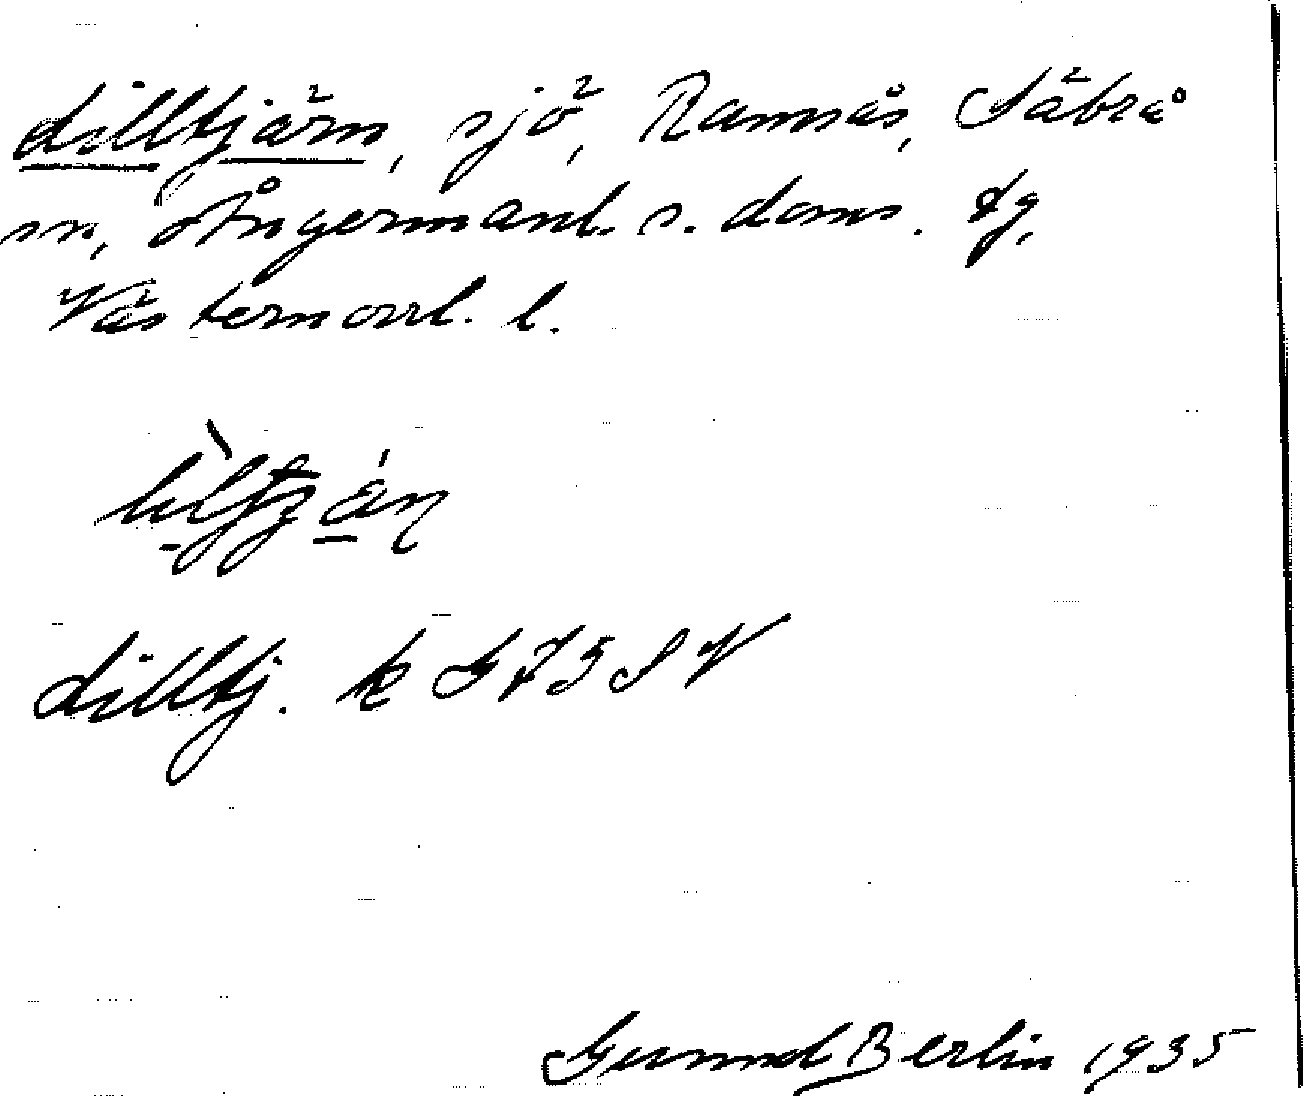 Lilltjärn, sjö, Ramsås, Säbrå
sn, Ångermanl. s. doms. tg,
Västernorrl. l.
Lilltj. k G 73 S V
Gunnel Berlin 1935